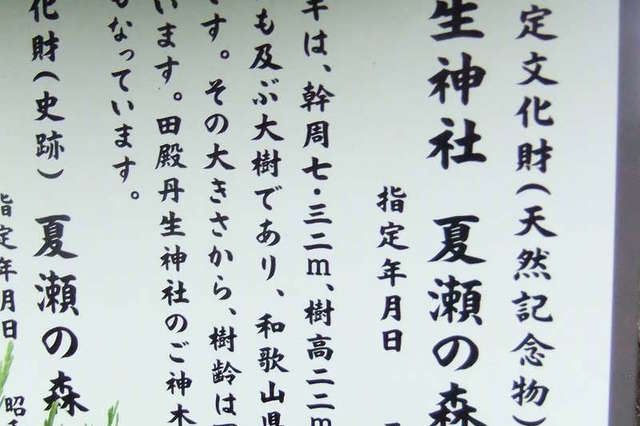 定文化財(天然記念物)
生神社 夏瀬の森
指定年月日
は、幹周七・三二m、樹高二二m
も及ぶ大樹であり、和歌山県
す。その大きさから、樹齢は
います。田殿丹生神社のご神木
もなっています。
化財(史跡) 夏瀬の森
指定年月日 昭